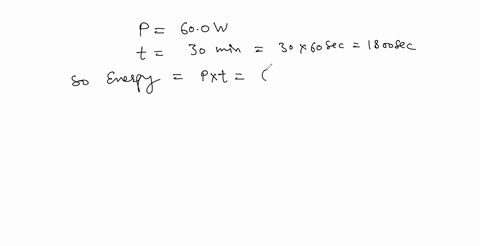 P = 60.0 W
t = 30 min = 30 × 60 sec = 1800 sec
so Energy = P×t = (